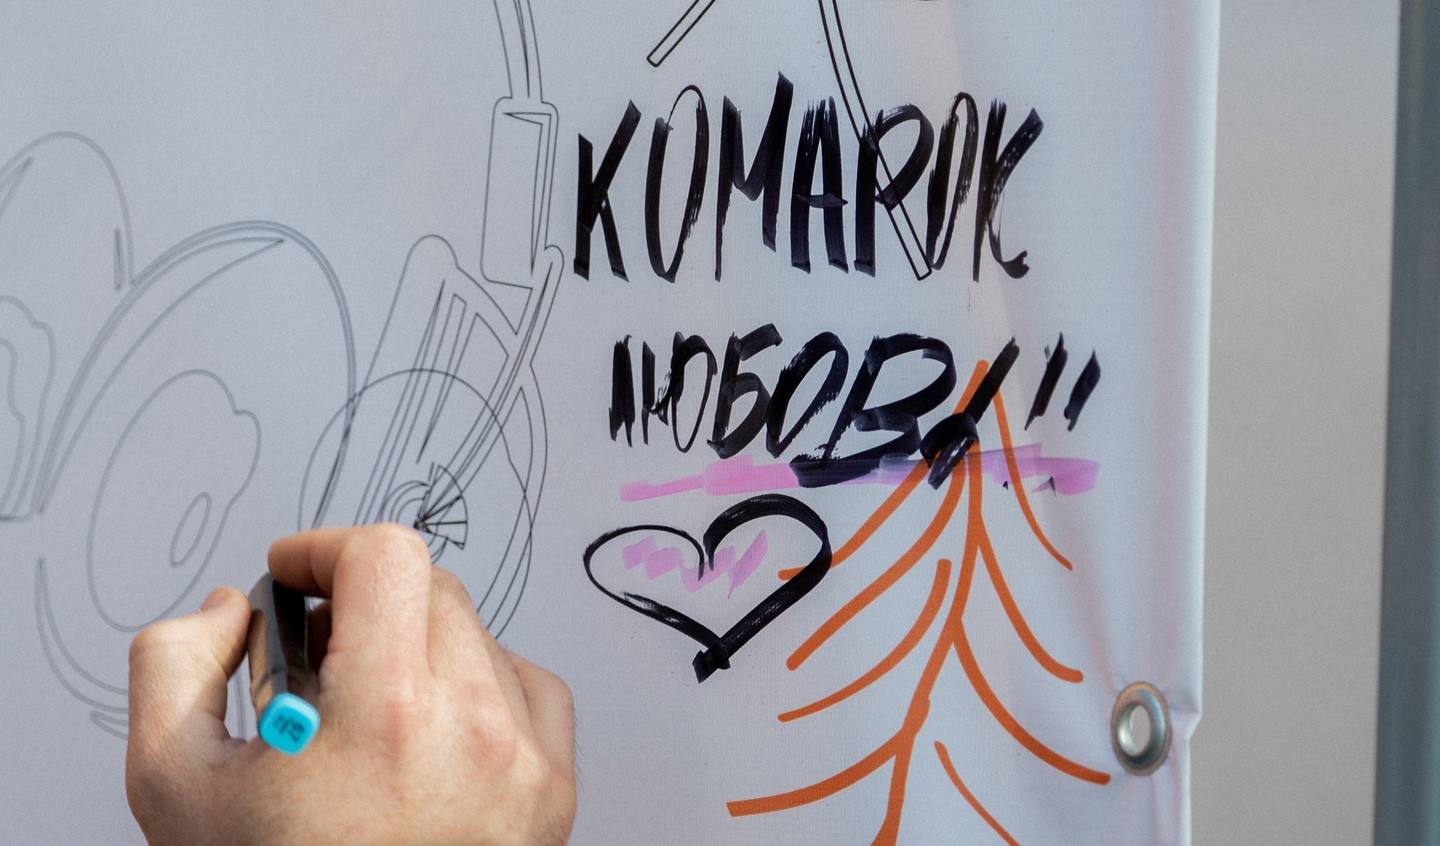 КОМАРОК
ЛЮБОВЬ!!